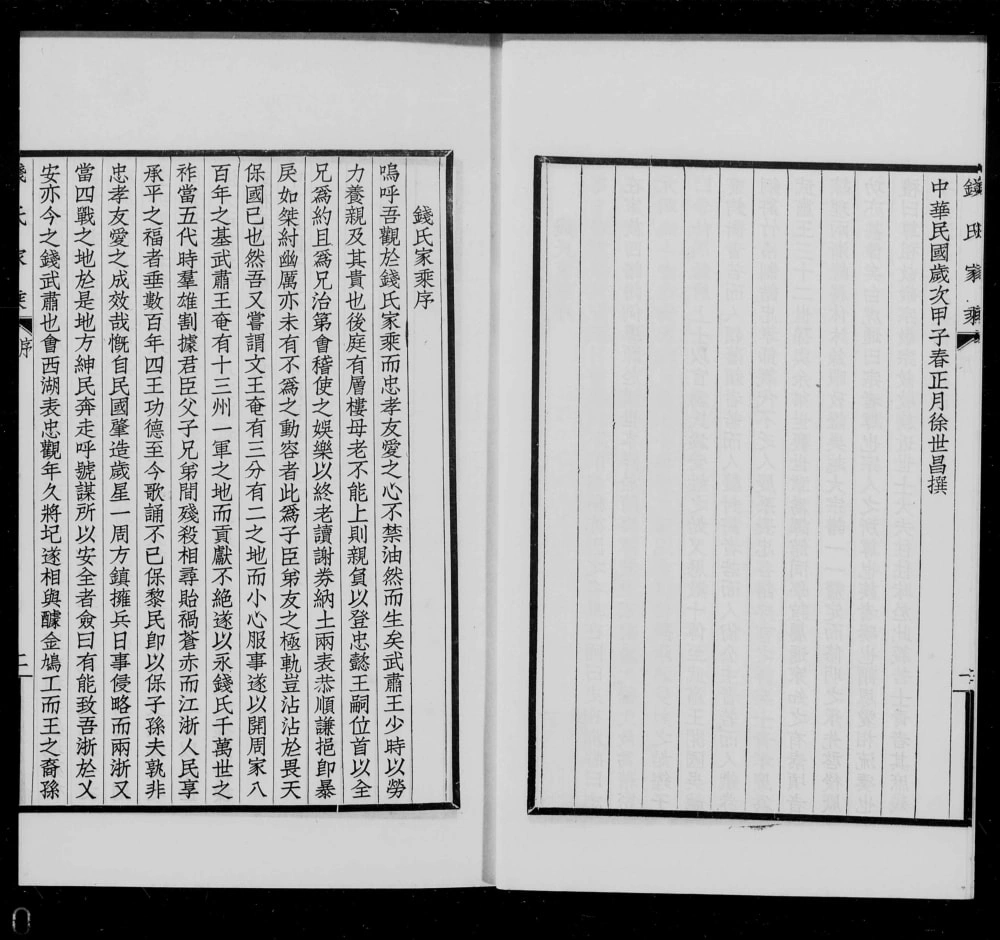 錢氏家乘
中華民國歲次甲子春正月徐世昌撰
錢氏家乘序
嗚呼吾觀於錢氏家乘而忠孝友愛之心不禁油然而生矣武肅王少時以勞
力養親及其貴也後庭有層樓母老不能上則親負以登忠懿王嗣位首以全
兄爲約且爲兄治第會稽使之娛樂以終老讀謝券納土兩表恭順謙挹卽暴
戾如桀紂幽厲亦未有不爲之動容者此爲子臣弟友之極軌豈沾沾於畏天
保國已也然吾又嘗謂文王奄有三分有二之地而小心服事遂以開周家八
百年之基武肅王奄有十三州一軍之地而貢獻不絕遂以永錢氏千萬世之
祚當五代時羣雄割據君臣父子兄弟間殘殺相尋貽禍蒼赤而江浙人民享
承平之福者垂數百年四王功德至今歌誦不已保黎民卽以保子孫夫孰非
忠孝友愛之成效哉慨自民國肇造歲星一周方鎮擁兵日事侵略而兩浙又
當四戰之地於是地方紳民奔走呼號謀所以安全者僉曰有能致吾浙於乂
安亦今之錢武肅也會西湖表忠觀年久將圮遂相與醵金鳩工而王之裔孫
錢氏家乘
序
二